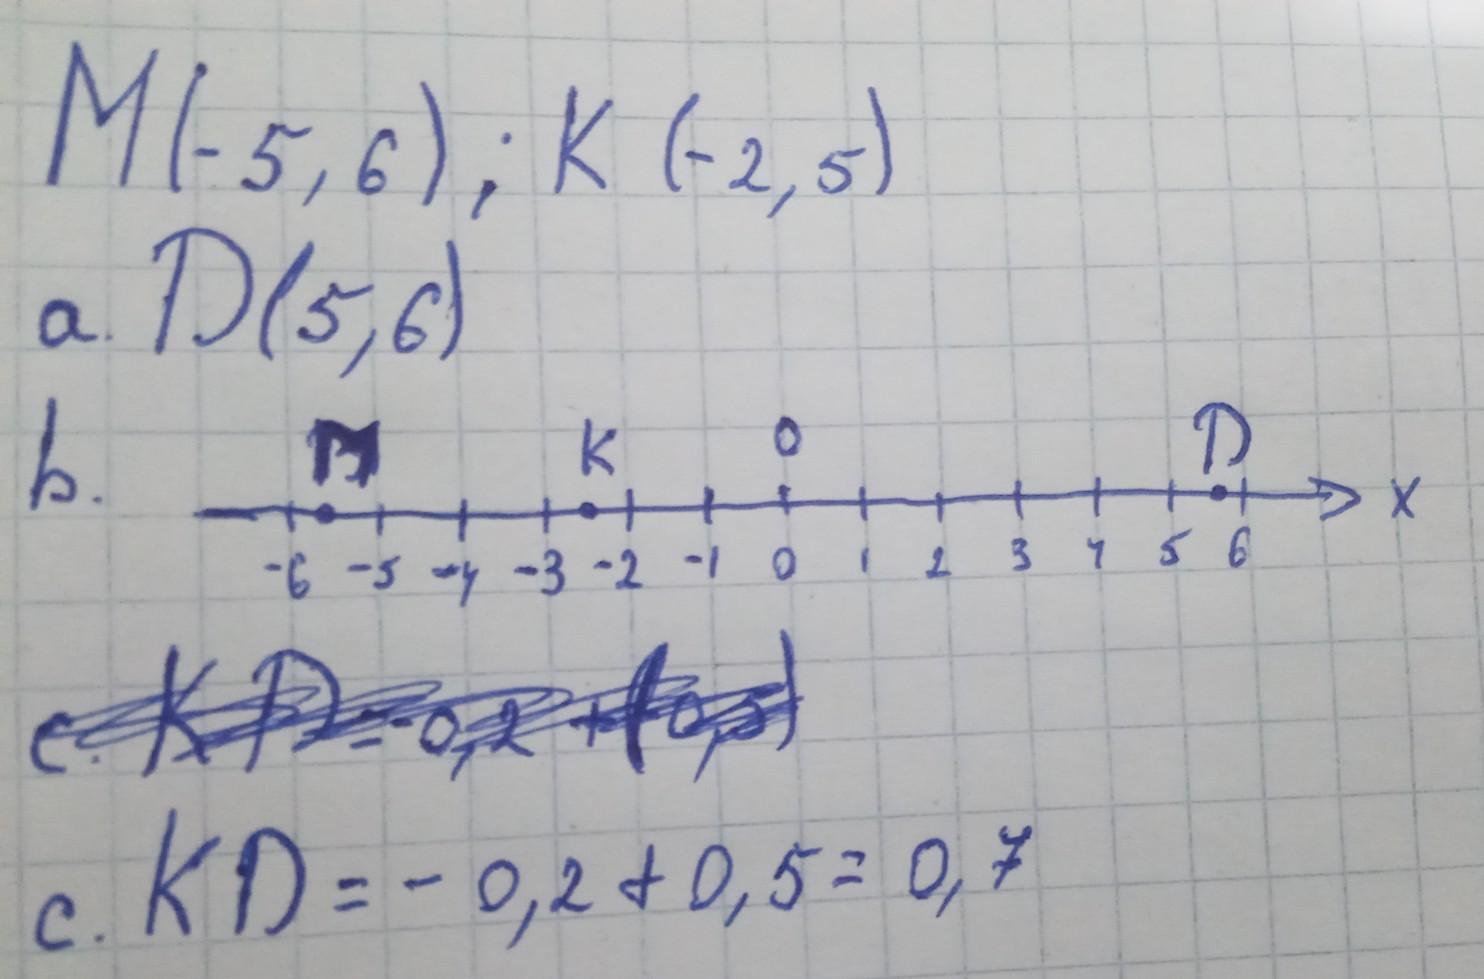 M(-5,6); K(-2,5)
a. D(5,6)
b. M K 0 D
x
-6 -5 -4 -3 -2 -1 0 1 2 3 4 5 6
c. KD=-0,2+(-0,5)
c. KD=-0,2+0,5=0,7